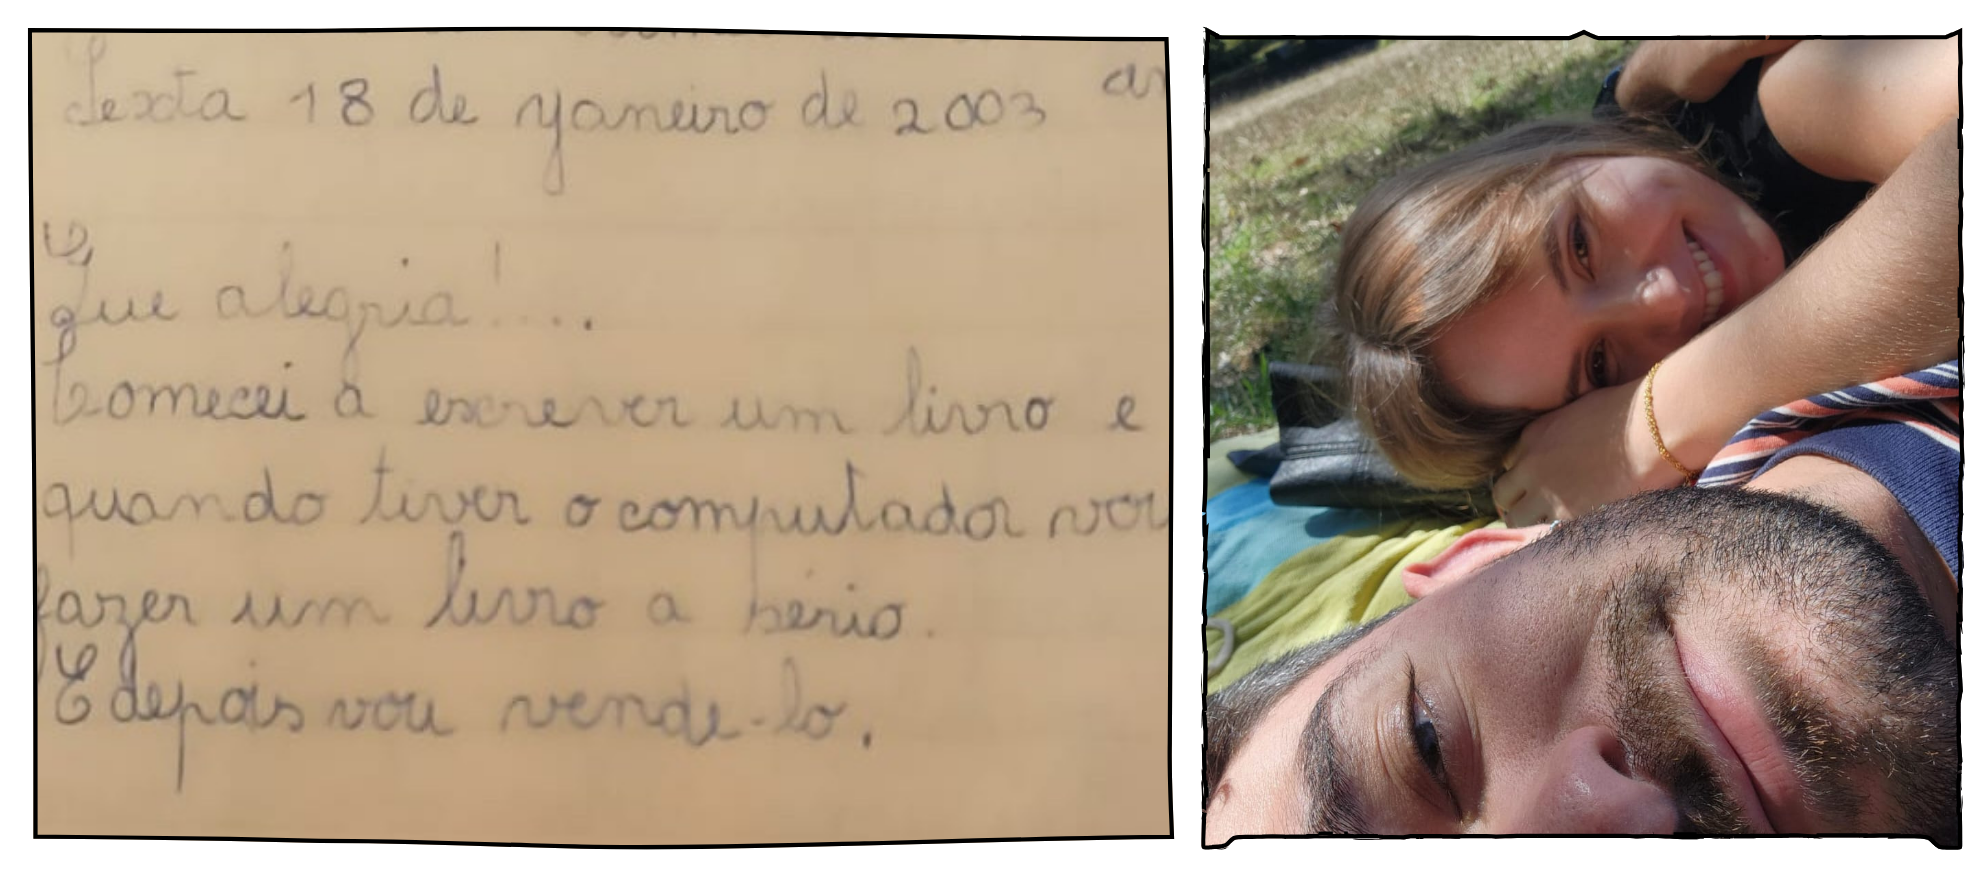 Sexta 18 de yaneiro de 2003
Que alegria!....
Comecei a escrever um livro e
quando tiver o computador vou
fazer um livro a sério.
E depois vou vende-lo.